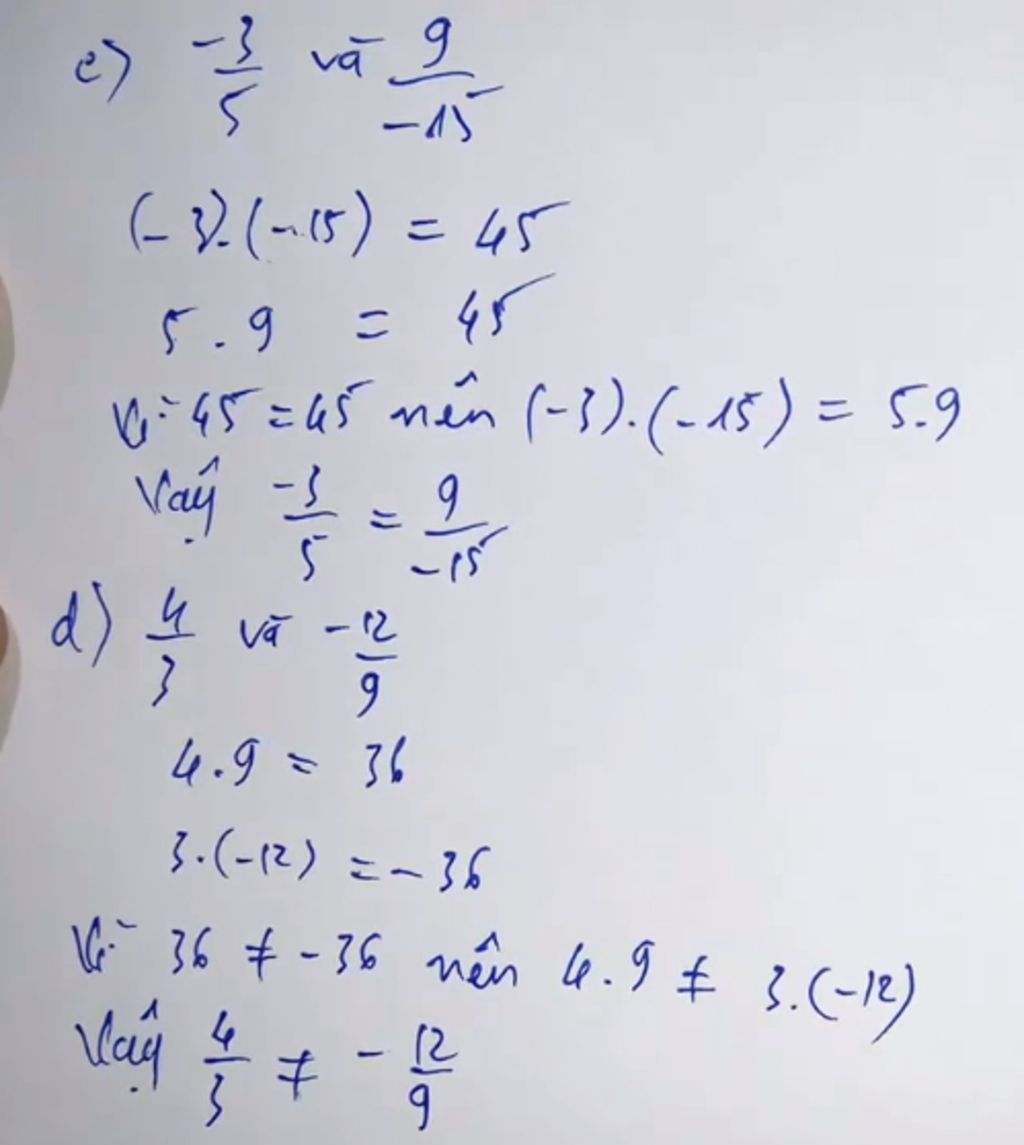 c) -3/5 và 9/-15
(-3).(-15) = 45
5.9 = 45
Vì 45 = 45 nên (-3).(-15) = 5.9
Vậy -3/5 = 9/-15
d) 4/3 và -12/9
4.9 = 36
3.(-12) = -36
Vì 36 ≠ -36 nên 4.9 ≠ 3.(-12)
Vậy 4/3 ≠ -12/9